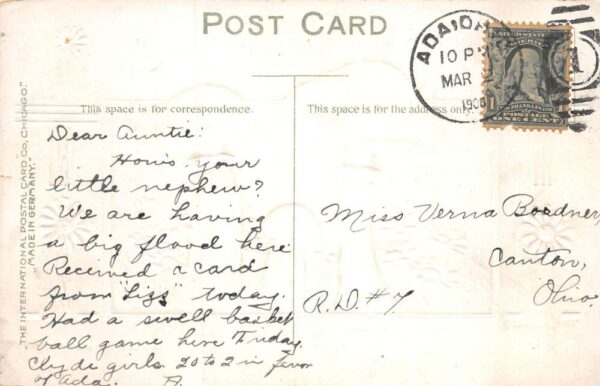 POST CARD
ADA, OH
10 PM
MAR
1908
1
FRANKLIN
POSTAGE
ONE CENT
1
This space is for correspondence.
This space is for the address only.
"THE INTERNATIONAL POSTAL CARD CO., CHICAGO."
"MADE IN GERMANY."
Dear Auntie:
How's your
little nephew?
We are having
a big flood here
Received a card
from "Lizs" today.
Had a swell basket
ball game here Friday
Clyde girls. 20 to 2 in favor
of Ada.
Miss Verna Bordner,
Canton,
R.D. #7
Ohio.